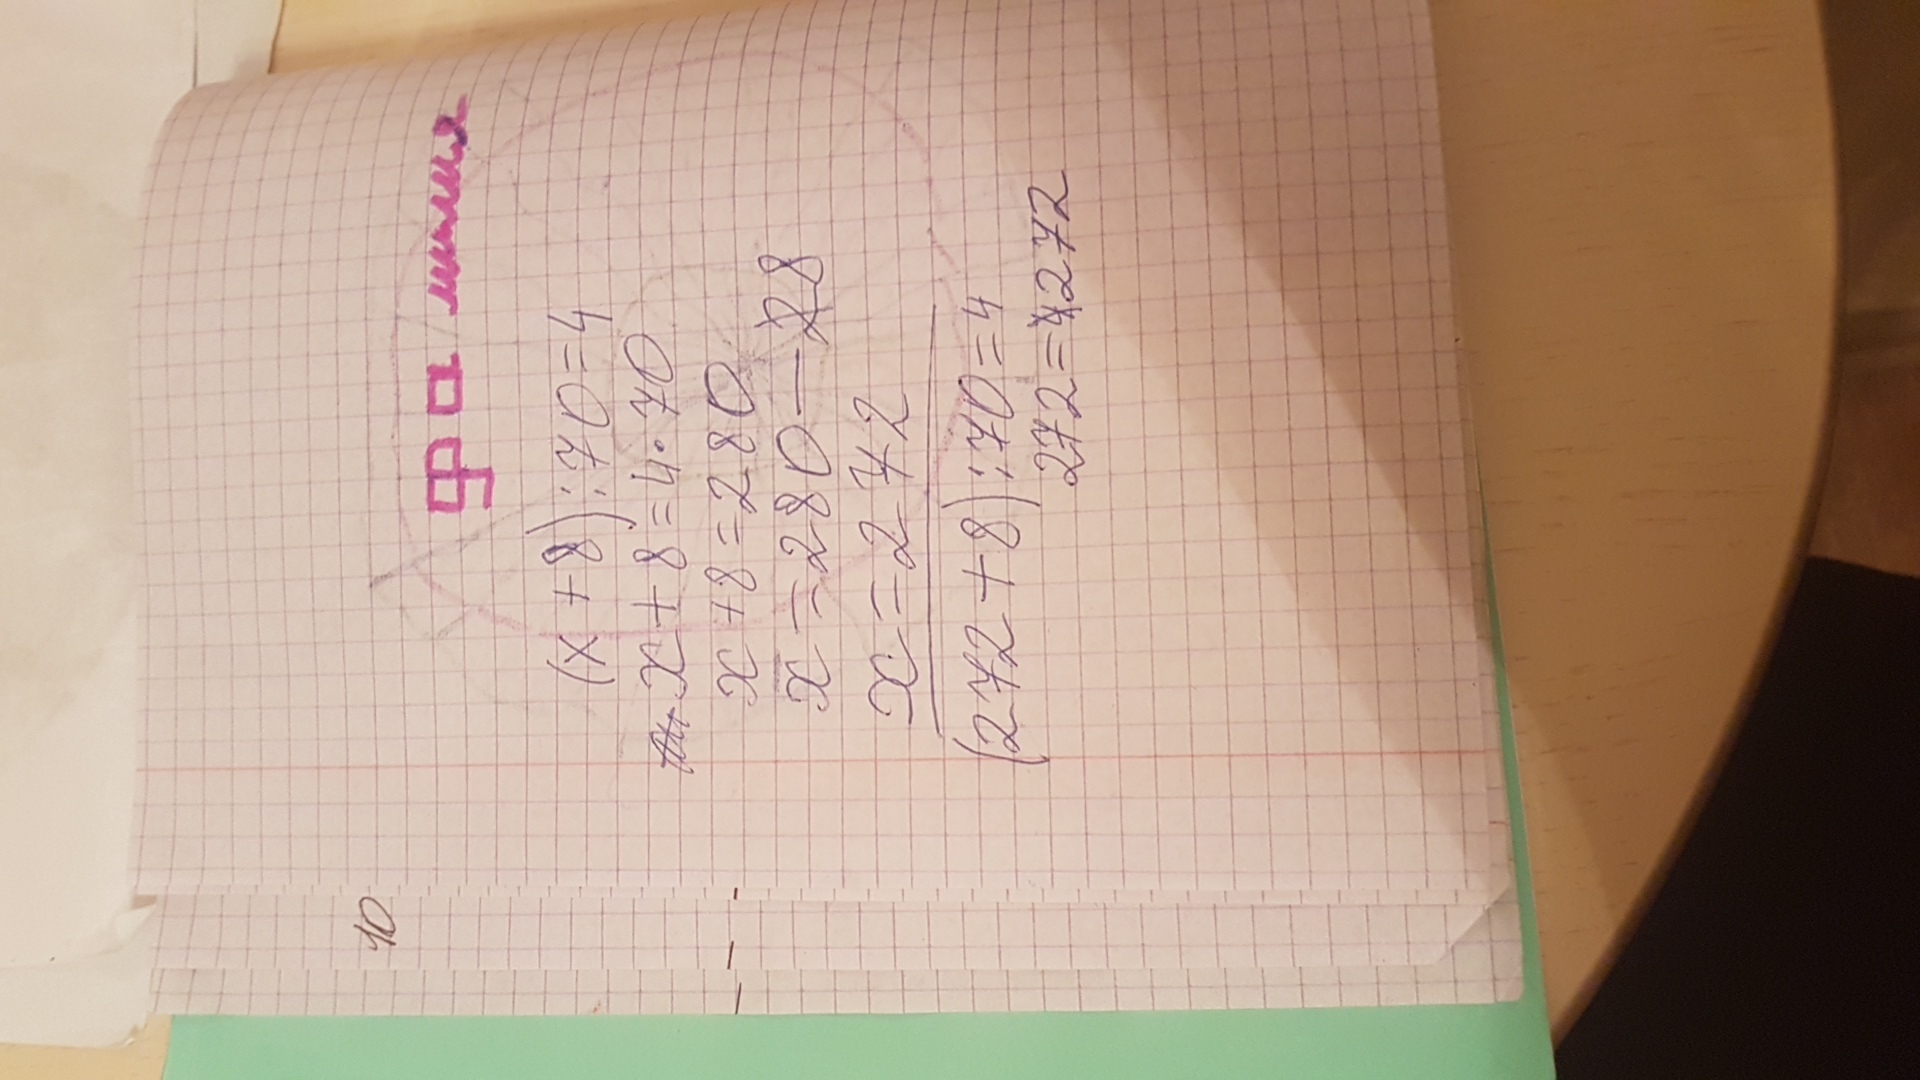 фамилия
(x+8):70=4
x+8=4·70
x+8=280
x=280-8
x=272
(272+8):70=4
272=272
10